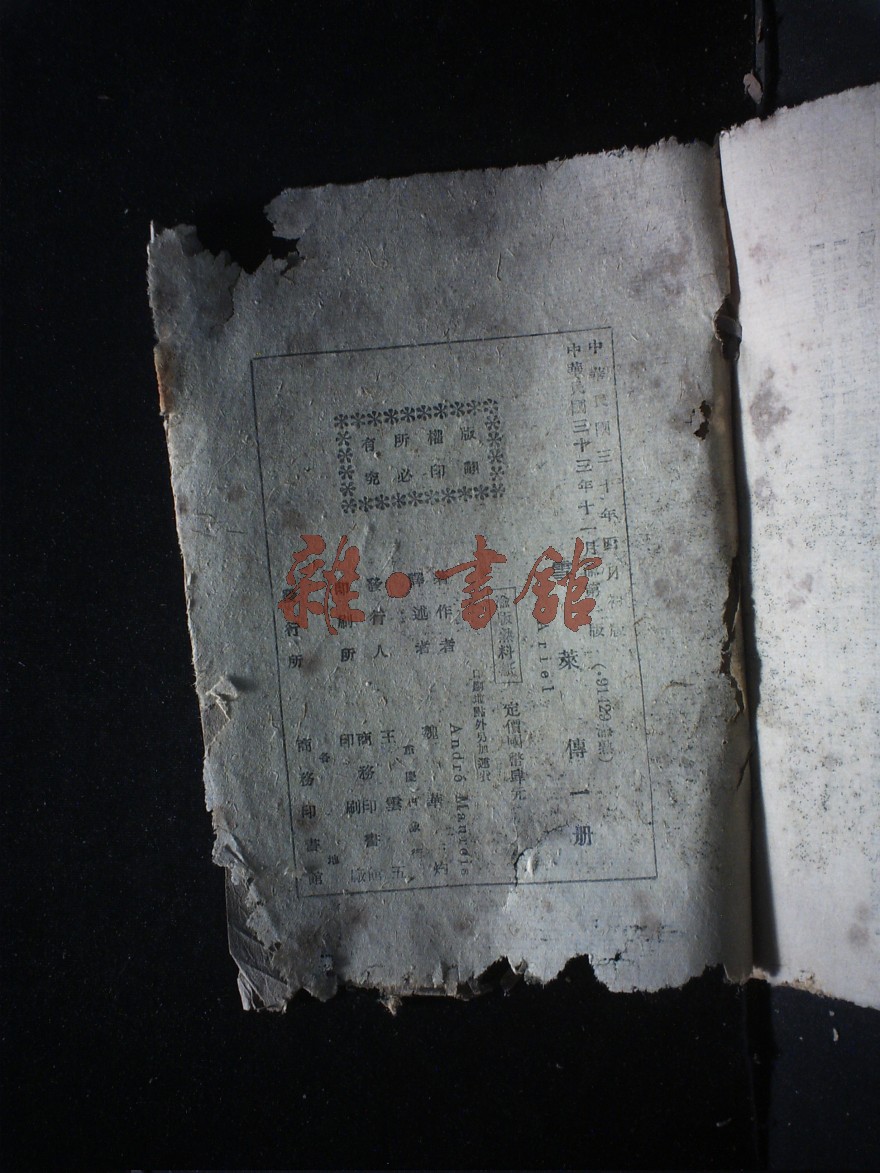 中華民國三十年四月初版
中華民國三十三年十一月
版
(·91429
雲萊傳一册
Ariel
定價國幣肆元
印刷地點外另加運費
原著作者
André Maurois
譯述者
魏華灼
發行人
王雲五
印刷所
商務印書館
印刷廠
發行所
各地
商務印書館
版權所有
翻印必究
雜·書館